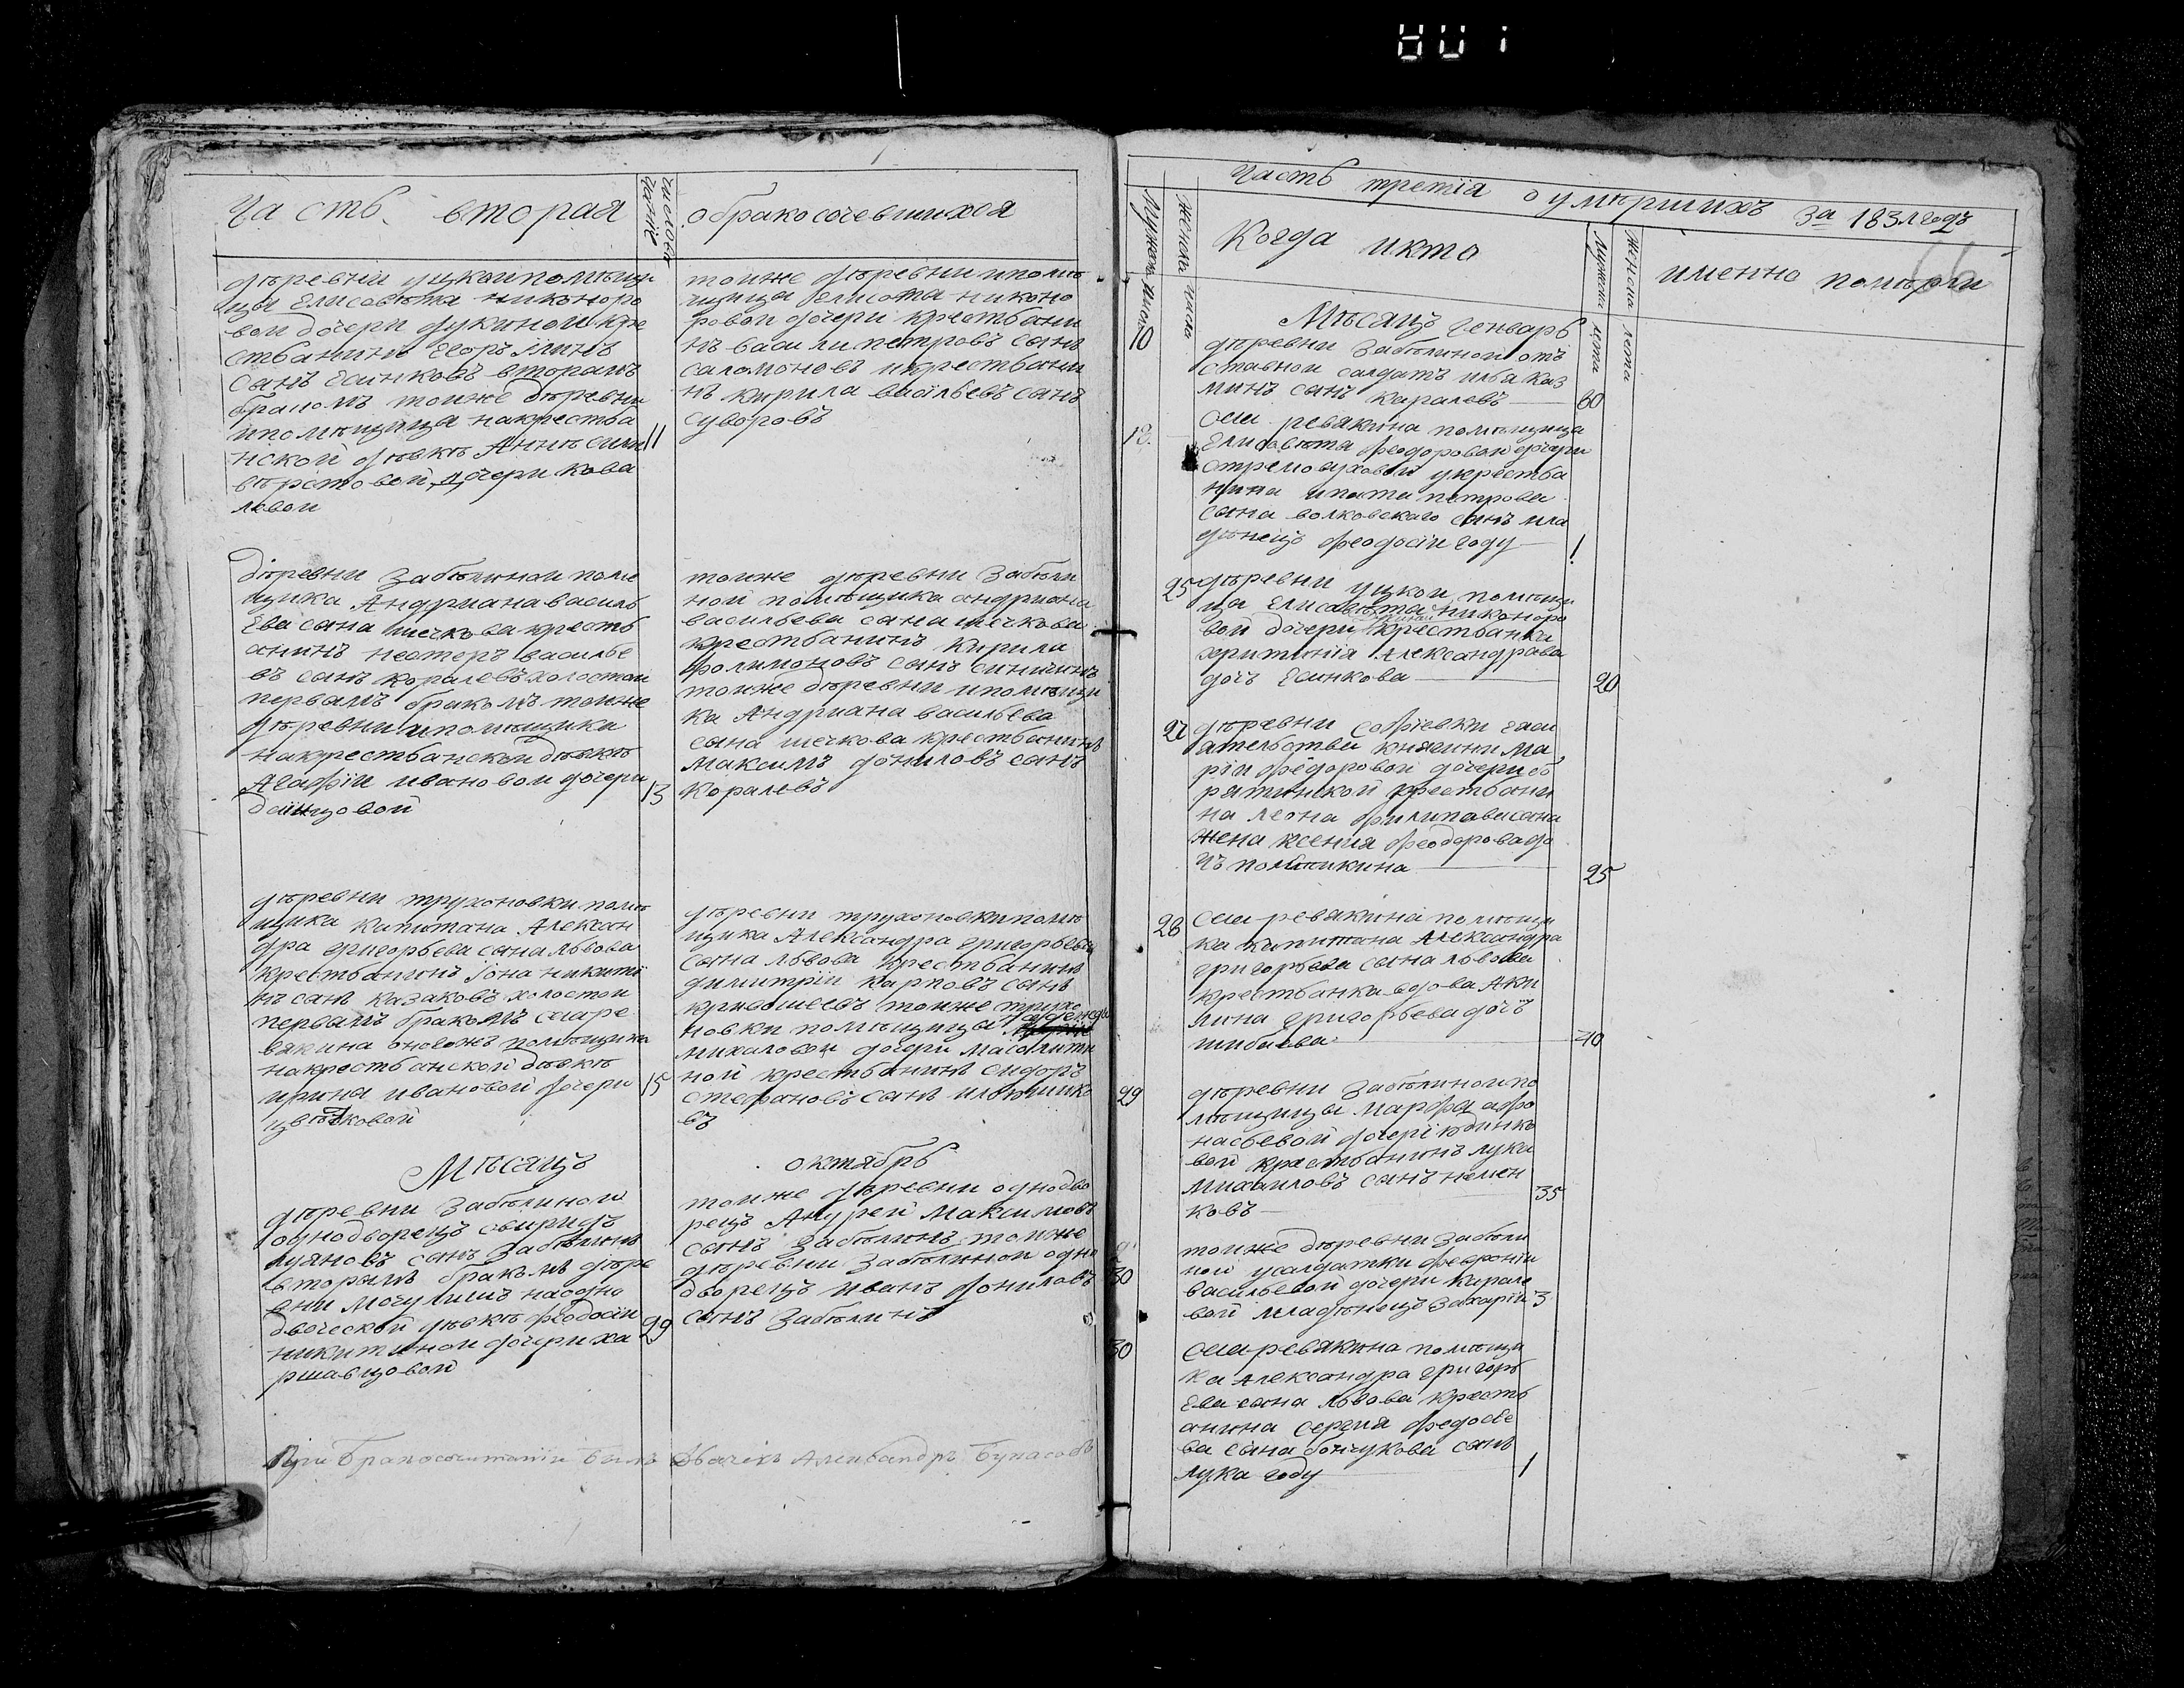 Часть вторая
число бра
чогние
обракосочевшихся
деревни уцкаи помещи
цы Елисавѣта никоноро
вой дочери лукиной кре
стьанинъ Егоръ Iлинъ
санъ Есинковъ вторамъ
бракомъ тоиже деревни
ипомѣщица накрестьа
нской дѣвкѣ Аннѣ
дочери кова
левои
11
тоиже деревни ипомѣ
щица Елисота никоно
ровой дочери крестьани
нъ василипетровъ санъ
саломоновъ икрестьани
нъ кирила васiльевъ санъ
суворовъ
дѣревни Забѣлинои поме
щика Андрианавасиль
Ева сана шечковакресть
анинъ нестеръ василье
въ санъ коралевъ холостои
первамъ бракомъ тоиже
дѣревни ипомѣщика
накрестьанской дѣвкѣ
Агафiи ивановои дочери
данцовой
13
тоиже деревни Забѣли
ной помѣщика андриона
васильева сана шечкова
крестьанинъ кирила
филимоновъ санъ синицинъ
тоиже дѣревни ипомѣщи
ка Андриана васильева
сана шечкова крестьанинъ
максимъ дониловъ санъ
коралевъ
дѣревни трухоновки помѣ
щика капитана Алексан
дра григорьева сына львова
крестьанинъ Iона никити
нъ санъ казаковъ холостои
первамъ бракомъ селаре
вякина оноваже помѣщика
накрестьанской дѣвкѣ
ирина ивановой дочери
цвѣтковой
15
дѣревни трухоновки помѣ
щика Александра григорьева
сына львова крестьанинъ
димитрiи карповъ санъ
кривошеевъ тоиже трухо
новки помѣщицы
михаловои дочери
ной крестьанинъ сидоръ
стефановъ санъ
въ
Мѣсяцъ
октябрь
дѣревни Забѣлиной
однодворецъ свиридъ
лукяновъ санъ Забѣлинъ
вторымъ бракомъ дѣре
вни наодно
дворческой дѣвкѣ федосiи
никитиной дочери ха
ршавцовой
29
тоиже дѣревни однодво
рецъ Андрей максимовъ
сынъ Забѣлинъ тоиже
дѣревни Забѣлиной одно
дворецъ иванъ дониловъ
сынъ Забѣлинъ
При Бракосочитании Былъ Дьячекъ Александръ
Часть третiя оумѣршихъ за 1831 годъ
Мужеск числа
женски числа
Когда икто
Мужеска лета
женска лета
именно помѣрли
66
Мѣсяцъ генварь
10
дѣревни Забѣлиной отъ
ставной салдатъ илья каз
минъ санъ каралевъ 60
12.
села ревякина помѣщица
Елисавѣта феодоровои дочери
стремоуховой укрестьа
нина ипата петрова
сына волковскаго санъ мла
дѣнецъ феодосiи году 1
25
дѣревни уцкои помѣщи
ца Елисавѣта никоноро
вой дочери крестьанка
херитинiя Александрова
дочъ Есинкова 20
27
дѣревни софiевки саси
ательства княгини ма
рiи фѣдоровои дочери бо
рятинской крестьани
на леона филипависана
жена ксения феодоровадо
чъ полыникина 25
28
села ревякина помѣщи
ка капитана Александра
григорьева сына львова
крестьанка вдова Аки
лина григорьева дочъ
шибаева 40
29
дѣревни Забѣлиной по
мѣщицы марфы афо
насьевой дочери
вой крестьанинъ лука
михаиловъ санъ
ковъ 35
30
тоиже дѣревни Забѣли
ной усалдатки февронiи
васильевой дочери карале
вой младѣнецъ Захарiи 3
30
села ревякина помѣщи
ка Александра григорь
Ева сына львова кресть
анина сергия федосѣе
ва сына санъ
лука году 1